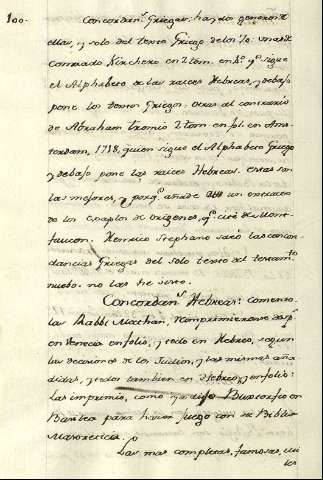 100.
Concordan.s Griegas: hay dos generos de
ellas, y solo del texto Griego de los 70. unas de
Conrado Kirchero en 2 tom. en 4.º q.e sigue
el Alphabeto de las raices Hebreas, y debajo
pone los textos Griegos. otras al contrario
de Abraham tromio 2 tom en fol. en Ams-
terdam, 1718. quien sigue el Alphabeto Griego
y debajo pone las raices Hebreas. estas son
las mejores, y porq.e añade un extracto
de los Exaplos de Origenes, q.e citó de Mont-
faucon. Henrico Stephano sacó las concor-
dancias Griegas del solo texto del testam.to
nuebo. no las he visto.
Concordan.s Hebreas: comenzo-
las Rabbi Mathan,
en Venecia en folio, y todo en Hebreo, segun
las decisiones de los Judios, y las mismas aña
didas, y todo tambien en Hebreo, y en folio:
Las imprimio, como ya dije Buxtorfio en
Basilea para hacer juego con su Biblia
Masoretica.
Las mas completas, famosas, uti
les